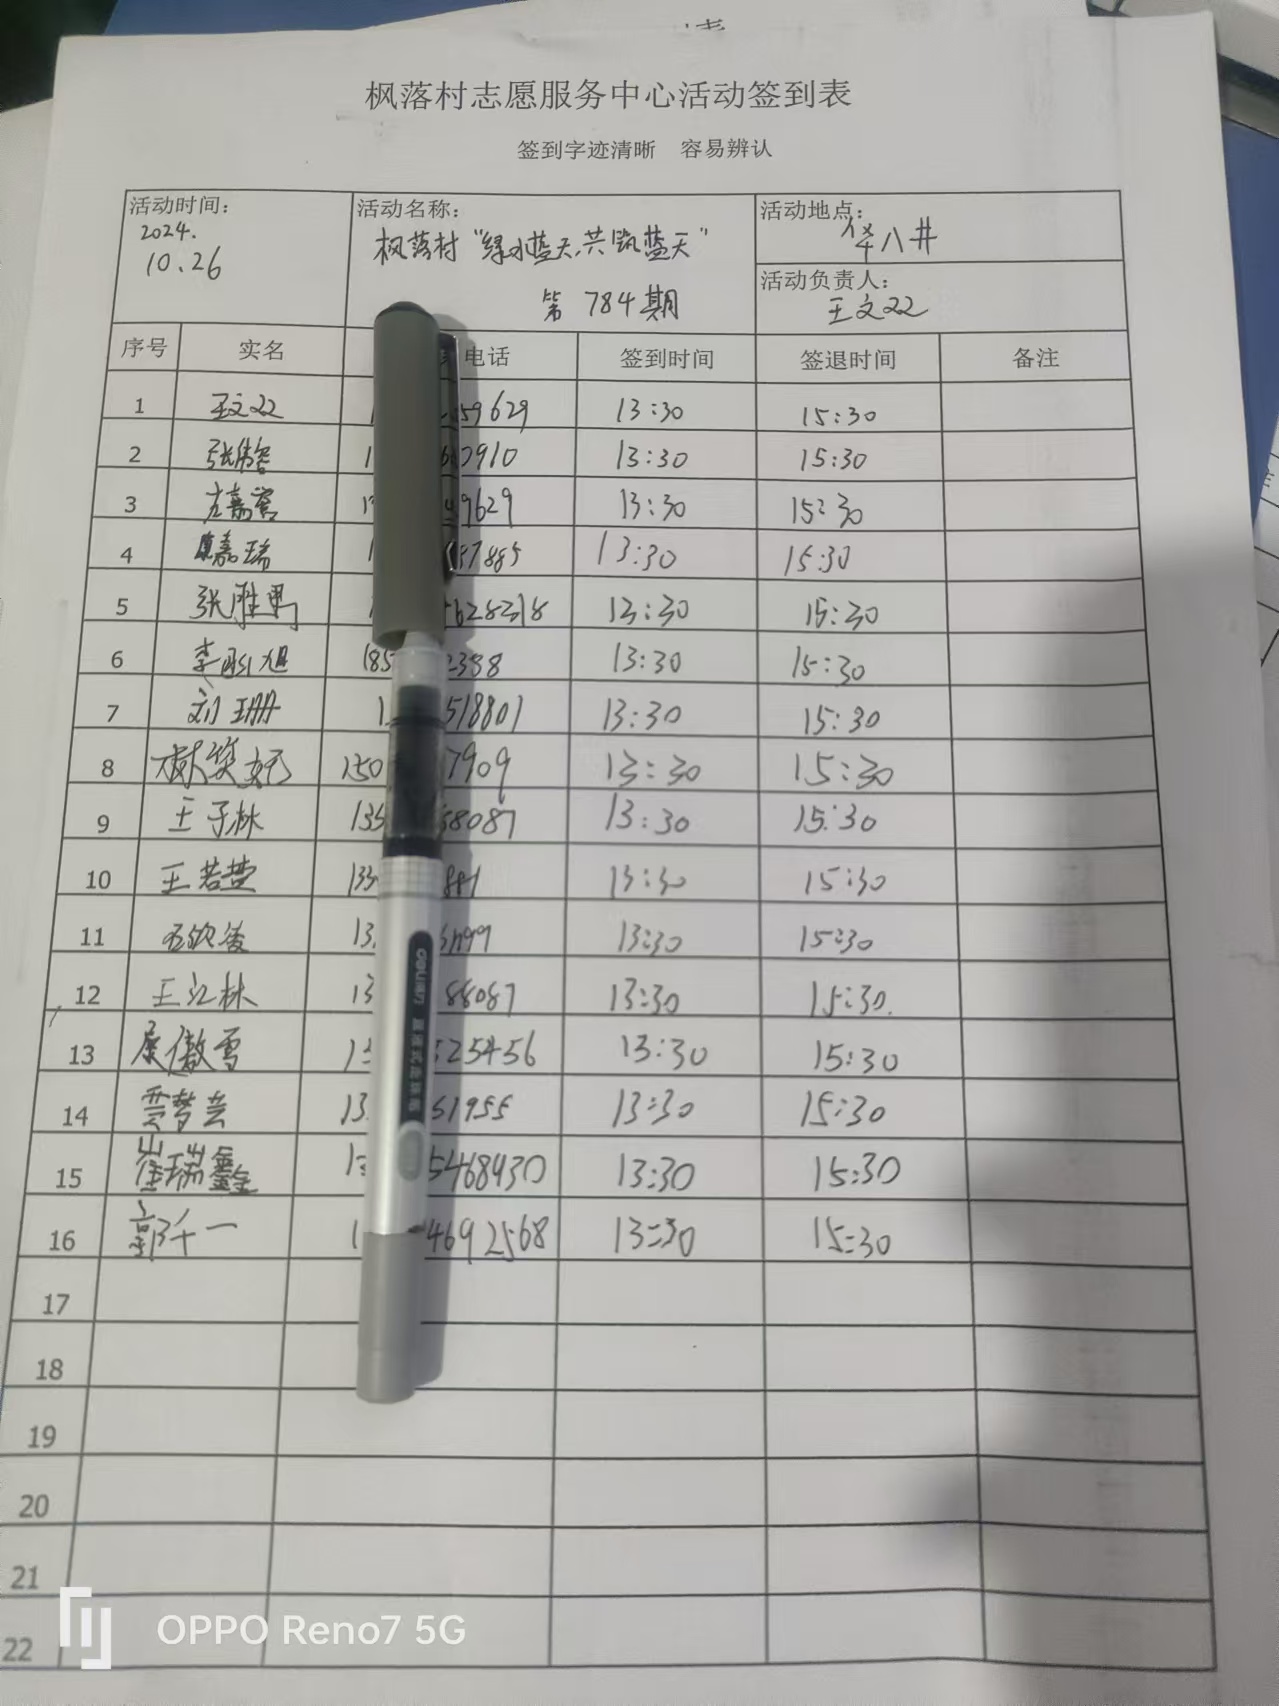 枫落村志愿服务中心活动签到表
签到字迹清晰 容易辨认
活动时间: 活动名称: 活动地点:
2024.
10.26
枫落村“绿水蓝天,共筑蓝天” 华八井
第 784 期
活动负责人:
王文双
序号 实名 电话 签到时间 签退时间 备注
1 王文双 59629 13:30 15:30
2 7910 13:30 15:30
3 9629 13:30 15:30
4 嘉瑞 7885 13:30 15:30
5 张胜男 628318 13:30 15:30
6 李 旭 185 2388 13:30 15:30
7 刘珊 1 518801 13:30 15:30
8 林笑妃 150 7909 13:30 15:30
9 王子林 135 88087 13:30 15:30
10 王若楚 133 881 13:30 15:30
11 13 13:30 15:30
12 王江林 13 88087 13:30 15:30
13 康傲雪 1 525456 13:30 15:30
14 贾梦芸 13 51955 13:30 15:30
15 崔瑞鑫 1 5468430 13:30 15:30
16 郭千一 1 4692568 13:30 15:30
17
18
19
20
21
22
deli得力
OPPO Reno7 5G